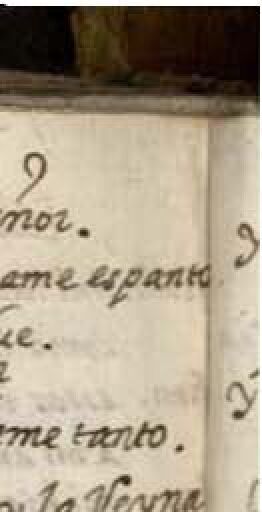 9
mor.
ame espanto
ue.
ame tanto.
la Reyna